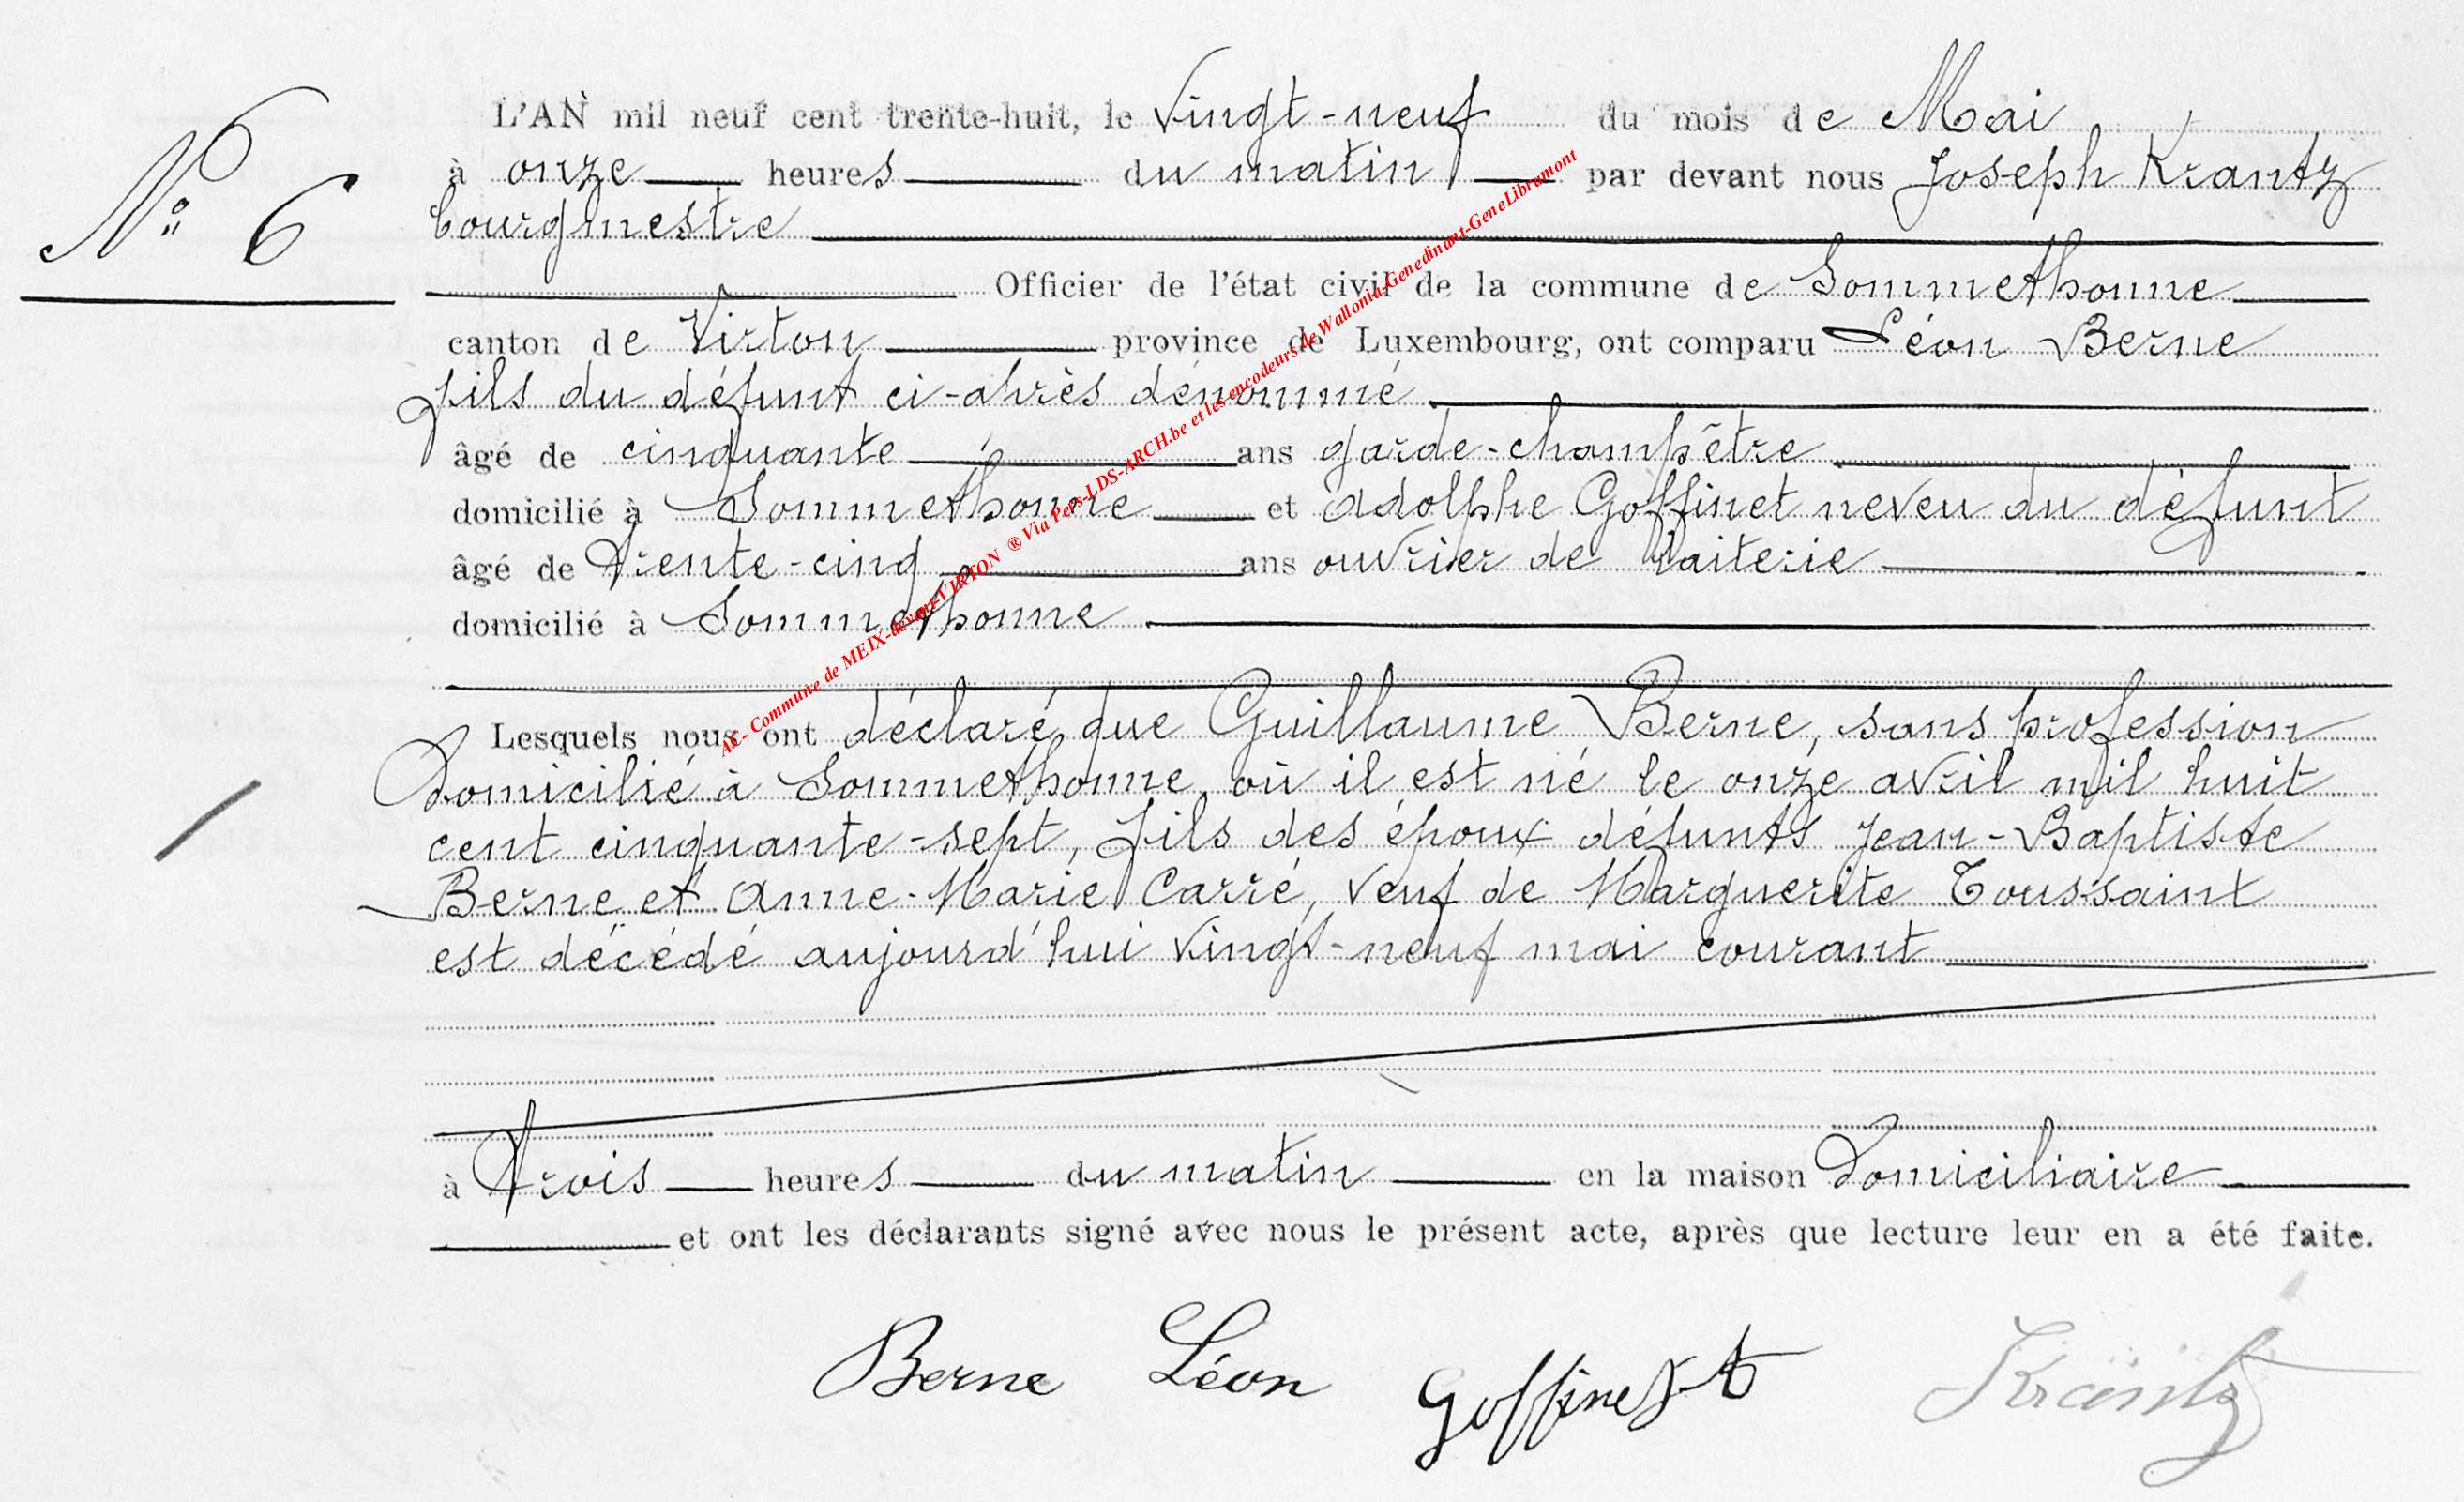 N° 6
L'AN mil neuf cent trente-huit, le Vingt-neuf du mois de Mai
à onze heures du matin par devant nous Joseph Krantz
bourgmestre
Officier de l'état civil de la commune de Sommethonne
canton de Virton province de Luxembourg, ont comparu Léon Berne
fils du défunt ci-après dénommé
âgé de cinquante ans garde-champêtre
domicilié à Sommethonne et Adolphe Goffinet neveu du défunt
âgé de trente-cinq ans ouvrier de laiterie
domicilié à Sommethonne
Lesquels nous ont déclaré que Guillaume Berne, sans profession
Domicilié à Sommethonne, où il est né le onze avril mil huit
cent cinquante-sept, fils des époux défunts Jean-Baptiste
Berne et Anne-Marie Carré, veuf de Marguerite Toussaint
est décédé aujourd'hui vingt-neuf mai courant
à trois heures du matin en la maison Domiciliaire
et ont les déclarants signé avec nous le présent acte, après que lecture leur en a été faite.
Berne Léon Goffinet Krantz
AC- Commune de MEIX-devant-VIRTON ® Via Pers-LDS-ARCH.be et les encodeurs de Wallonia-Genedinant-GeneLibramont